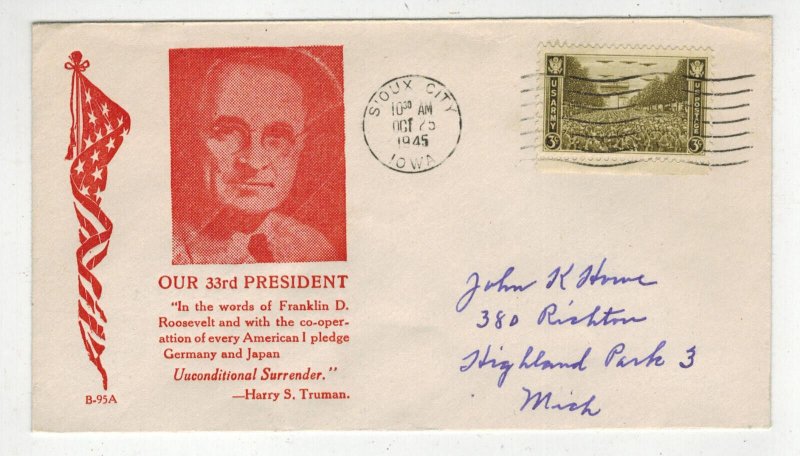 OUR 33rd PRESIDENT
"In the words of Franklin D.
Roosevelt and with the co-oper-
attion of every American I pledge
Germany and Japan
Uuconditional Surrender."
—Harry S. Truman.
B-95A
SIOUX CITY
10 30 AM
OCT 25
1945
IOWA
US ARMY
U.S. POSTAGE
3¢
3¢
John K Howe
380 Richton
Highland Park 3
Mich